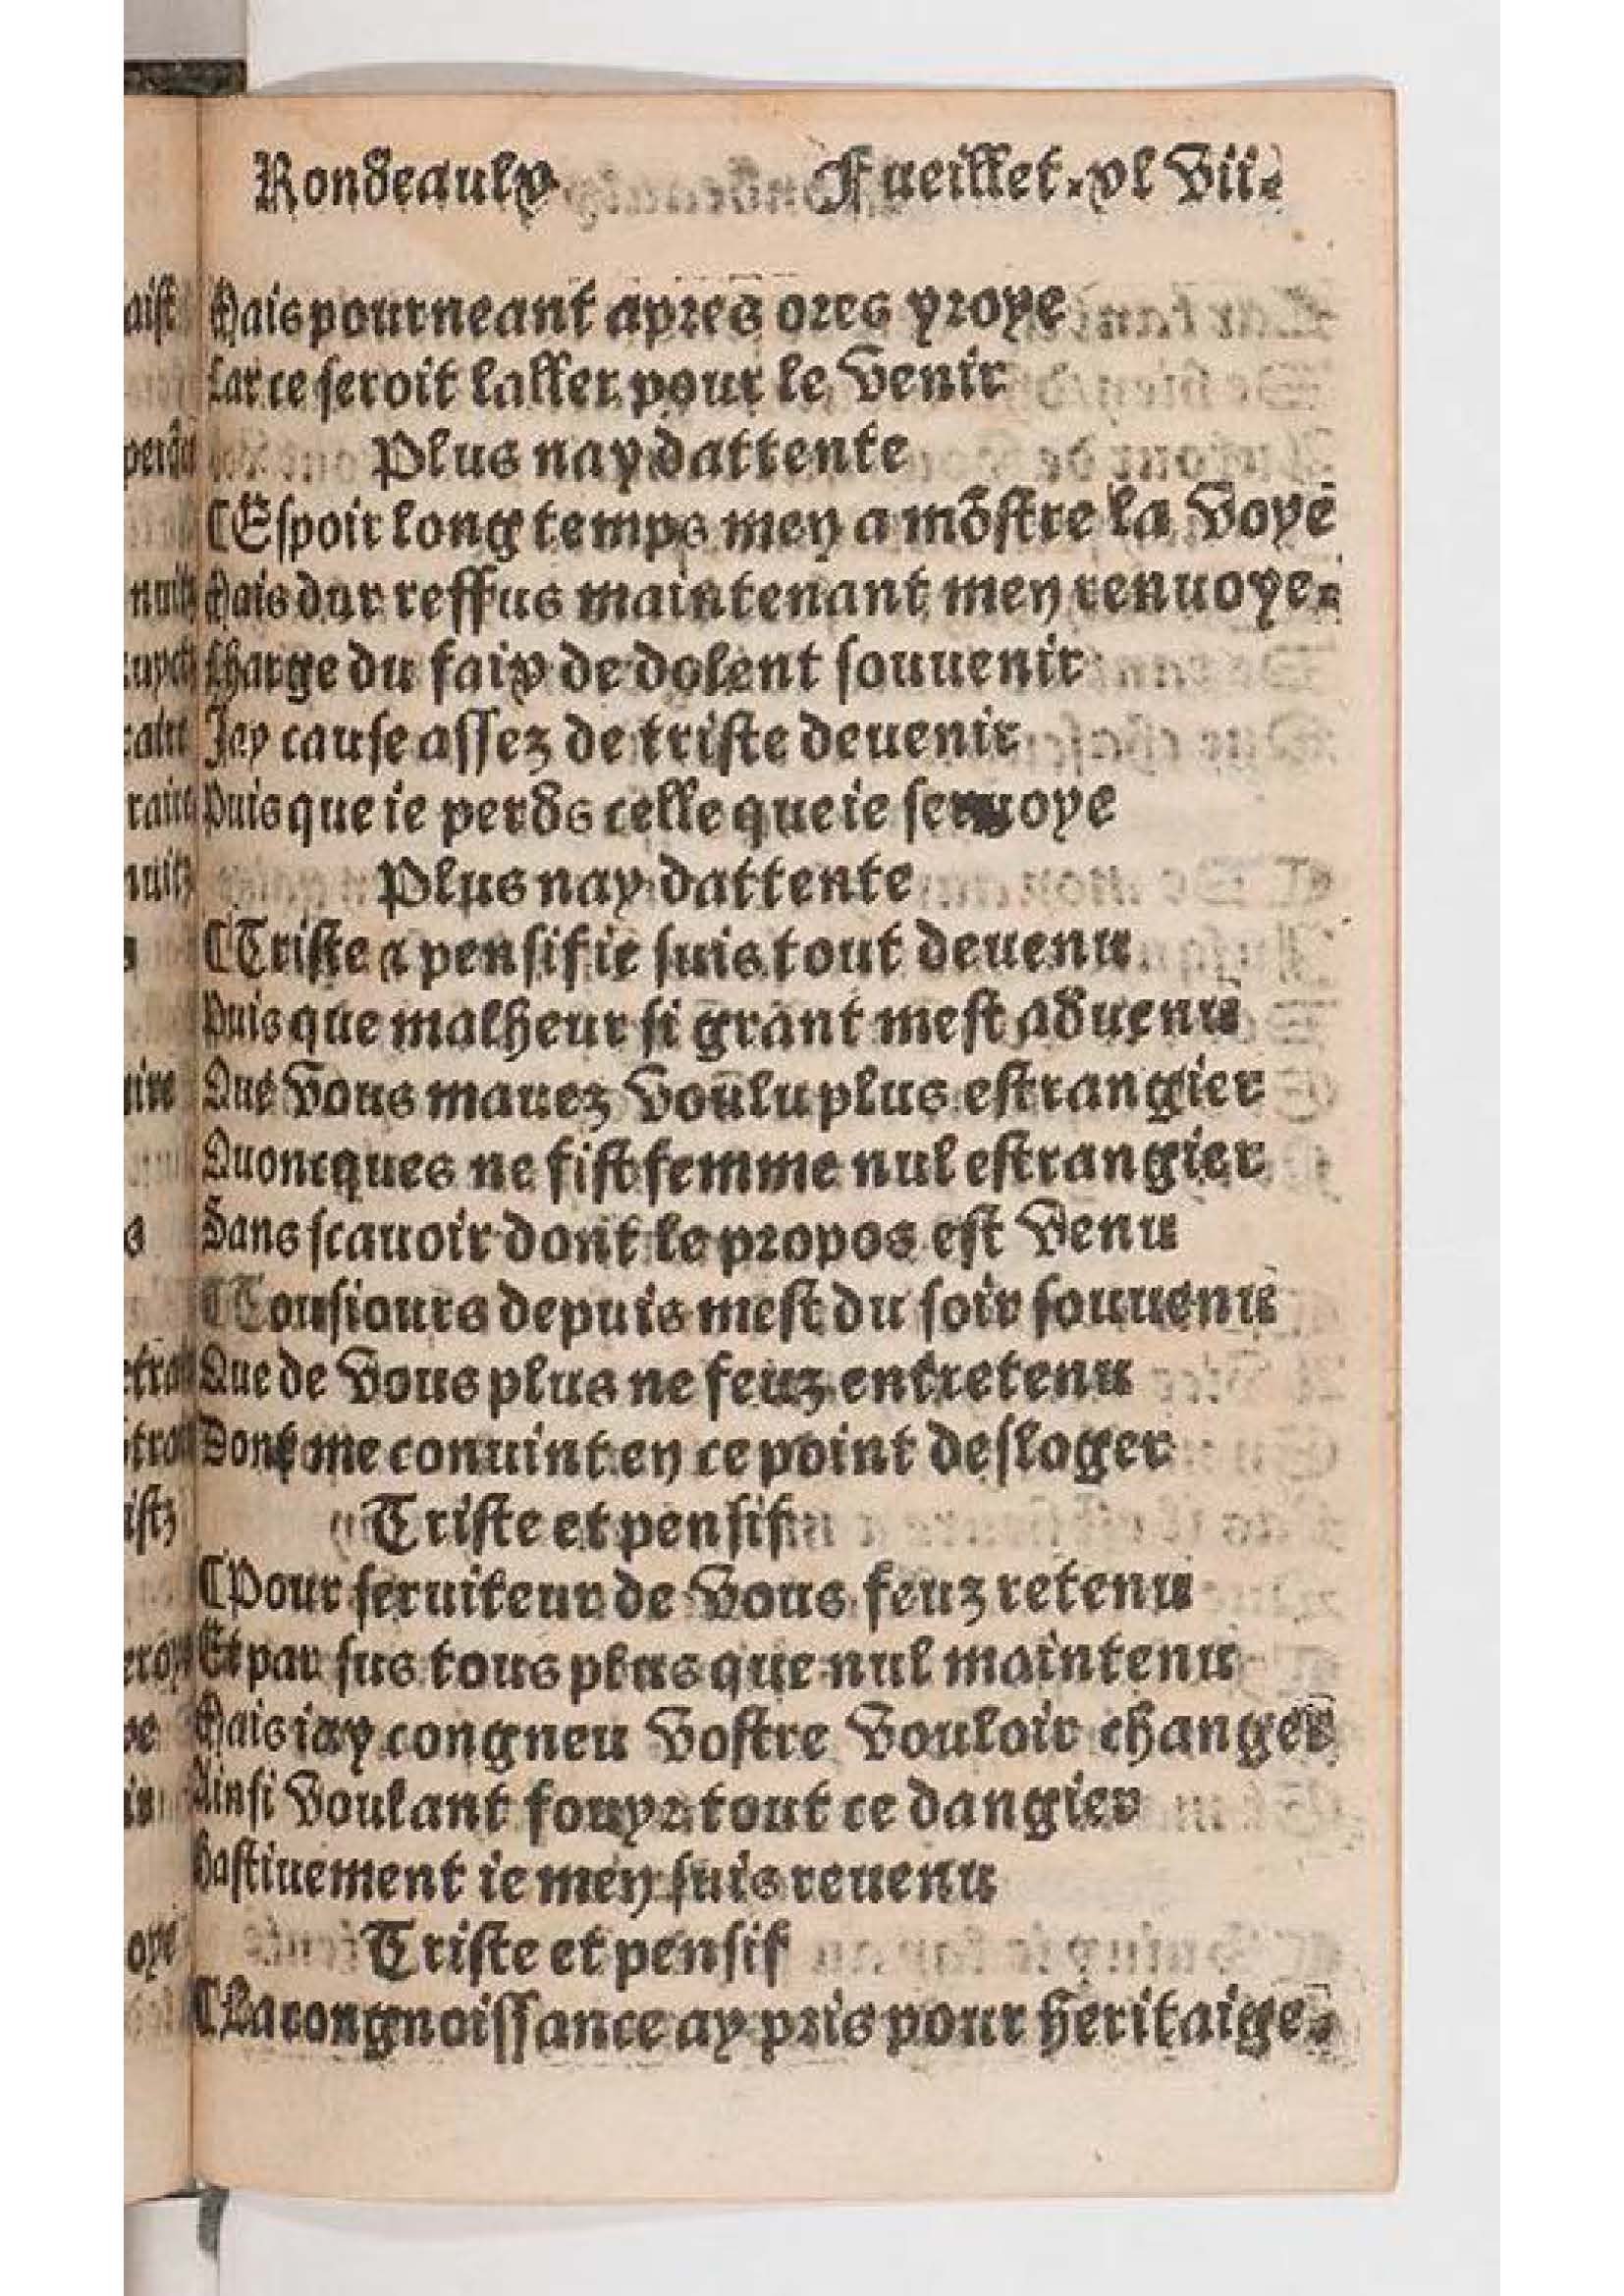 Rondeaulx Fueillet.xl vii.
Mais pour neant apres ores yroye
Car ce seroit laller pour le venir
Plus nay dattente
¶Espoir long temps men a mõstre la voye
Mais dur reffus maintenant men renuoye.
Charge du faix de dolent souuenir
Jay cause assez de triste deuenir
Puis que ie perds celle que ie seruoye
Plus nay dattente
¶Triste & pensif ie suis tout deuenu
Puis que malheur si grant mest aduenu
Que vous mauez voulu plus estrangier
Quoncques ne fist femme nul estrangier
Sans scauoir dont le propos est venu
¶Tousiours depuis mest du soir souuenu
Que de vous plus ne feuz entretenu
Dont me conuint en ce point desloger
Triste et pensif
¶Pour seruiteur de vous feuz retenu
Et par sus tous plus que nul maintenu
Mais iay congneu vostre vouloir changer
Ainsi voulant fouyr tout ce dangier
Hastiuement ie men suis reuenu
Triste et pensif
¶La congnoissance ay pris pour heritaige.